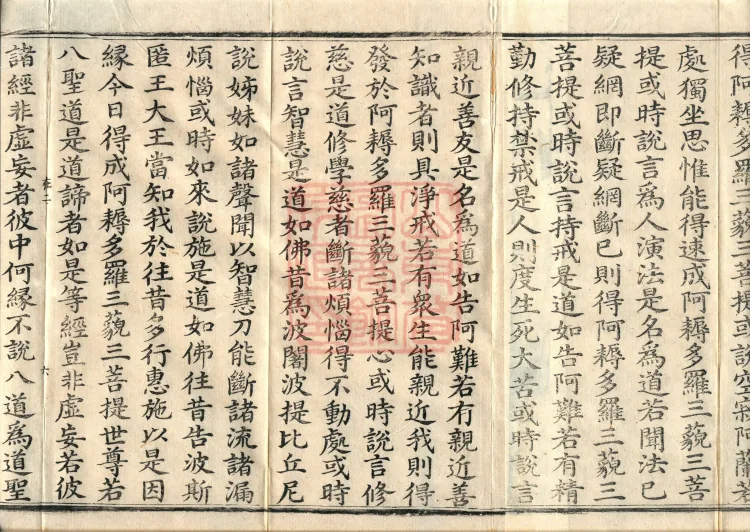 得阿耨多羅三藐三菩提或說空寂阿蘭若
處獨坐思惟能得速成阿耨多羅三藐三菩
提或時說言爲人演法是名爲道若聞法已
疑網即斷疑網斷已則得阿耨多羅三藐三
菩提或時說言持戒是道如告阿難若有精
勤修持禁戒是人則度生死大苦或時說言
親近善友是名爲道如告阿難若有親近善
知識者則具淨戒若有衆生能親近我則得
發於阿耨多羅三藐三菩提心或時說言修
慈是道修學慈者斷諸煩惱得不動處或時
說言智慧是道如佛昔爲波闍波提比丘尼
說姊妹如諸聲聞以智慧刀能斷諸流諸漏
煩惱或時如來說施是道如佛往昔告波斯
匿王大王當知我於往昔多行惠施以是因
緣今日得成阿耨多羅三藐三菩提世尊若
八聖道是道諦者如是等經豈非虛妄若彼
六
諸經非虛妄者彼中何緣不說八道爲道聖